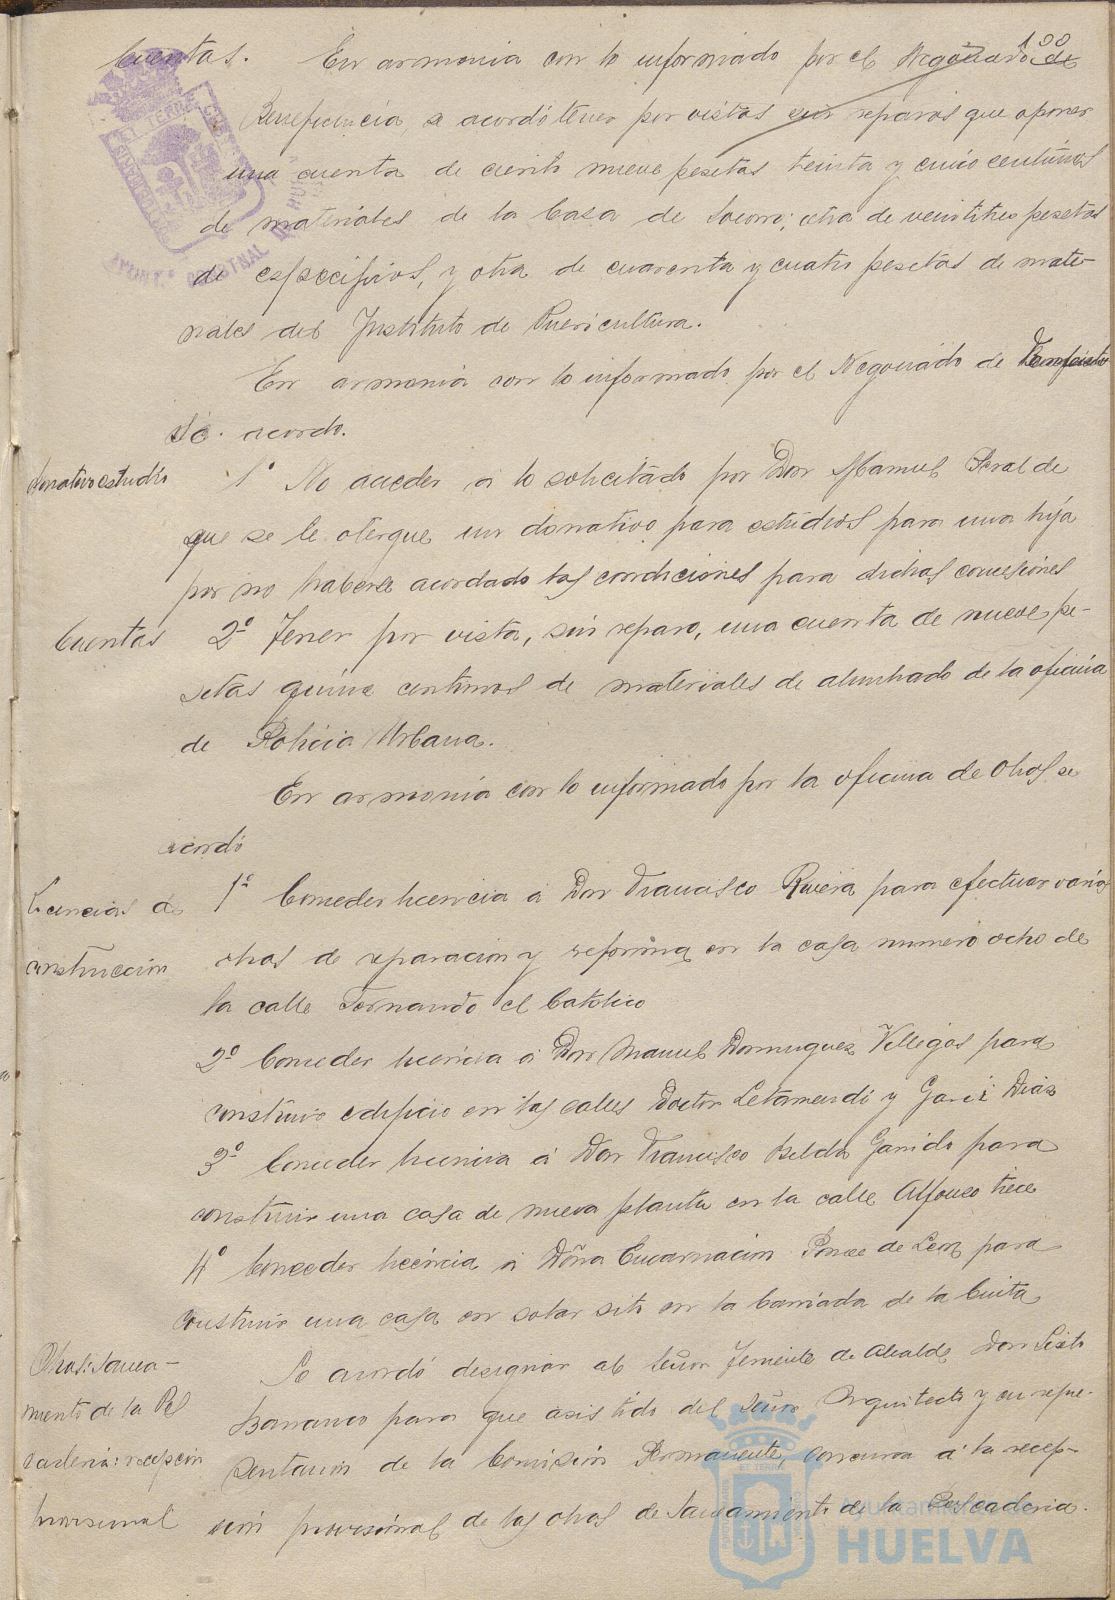 100
Cuentas. En armonia con lo informado por el Negociado de
Beneficencia, se acordó tener por vistas sin reparos que oponer
una cuenta de ciento nueve pesetas treinta y cinco centimos
de materiales de la Casa de Socorro; otra de veintitres pesetas
de especificos, y otra de cuarenta y cuatro pesetas de mate-
riales del Instituto de Puericultura.
En armonia con lo informado por el Negociado de
Se acordo.
donativo estudio 1º No acceder a lo solicitado por Don Manuel Peral de
que se le otorgue un donativo para estudios para una hija
por no haberse acordado las condiciones para dichas concesiones
Cuentas 2º Tener por vista, sin reparo, una cuenta de nueve pe-
setas quince centimos de materiales de alumbrado de la oficina
de Policia Urbana.
En armonia con lo informado por la oficina de Obras se
acordó
Licencias de 1º Conceder licencia a Don Francisco Rivera para efectuar varias
construcción obras de reparacion y reforma en la casa numero ocho de
la calle Fernando el Catolico
2º Conceder licencia a Don Manuel Dominguez Villegas para
construir edificio en las calles Doctor Letamendi y Garci Diaz
3º Conceder licencia a Don Francisco Belda Garrido para
construir una casa de nueva planta en la calle Alfonso trece
4º Conceder licencia a Doña Encarnacion Ponce de Leon para
construir una casa en solar sito en la barriada de la Cinta
Obras: Sanea- Se acordó designar al Señor Teniente de Alcalde Don Sixto
miento de la Pes Barranco para que asistido del Señor Arquitecto y en repre-
caderia: recepcion sentacion de la Comision Permanente, concurra a la recep-
provisional cion provisional de las obras de Saneamiento de la Pescaderia.
Ayuntamiento de
HUELVA